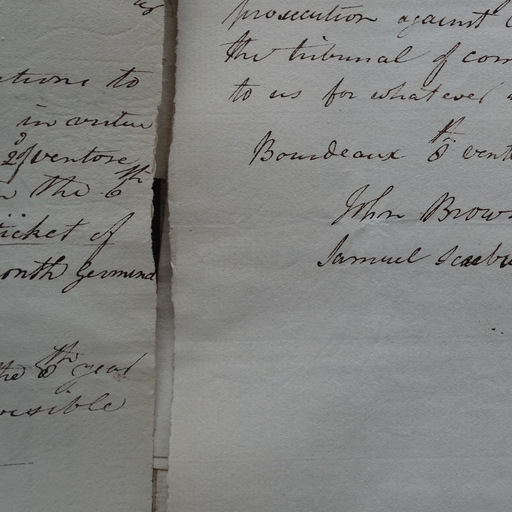 as
to
in virtue
29 ventose
the 6th
ticket of
month Germinal
the 8th year
visible
prosecution against
the tribunal of com
to us for whatever
Bourdeaux 8th vent
John Brow
Samuel